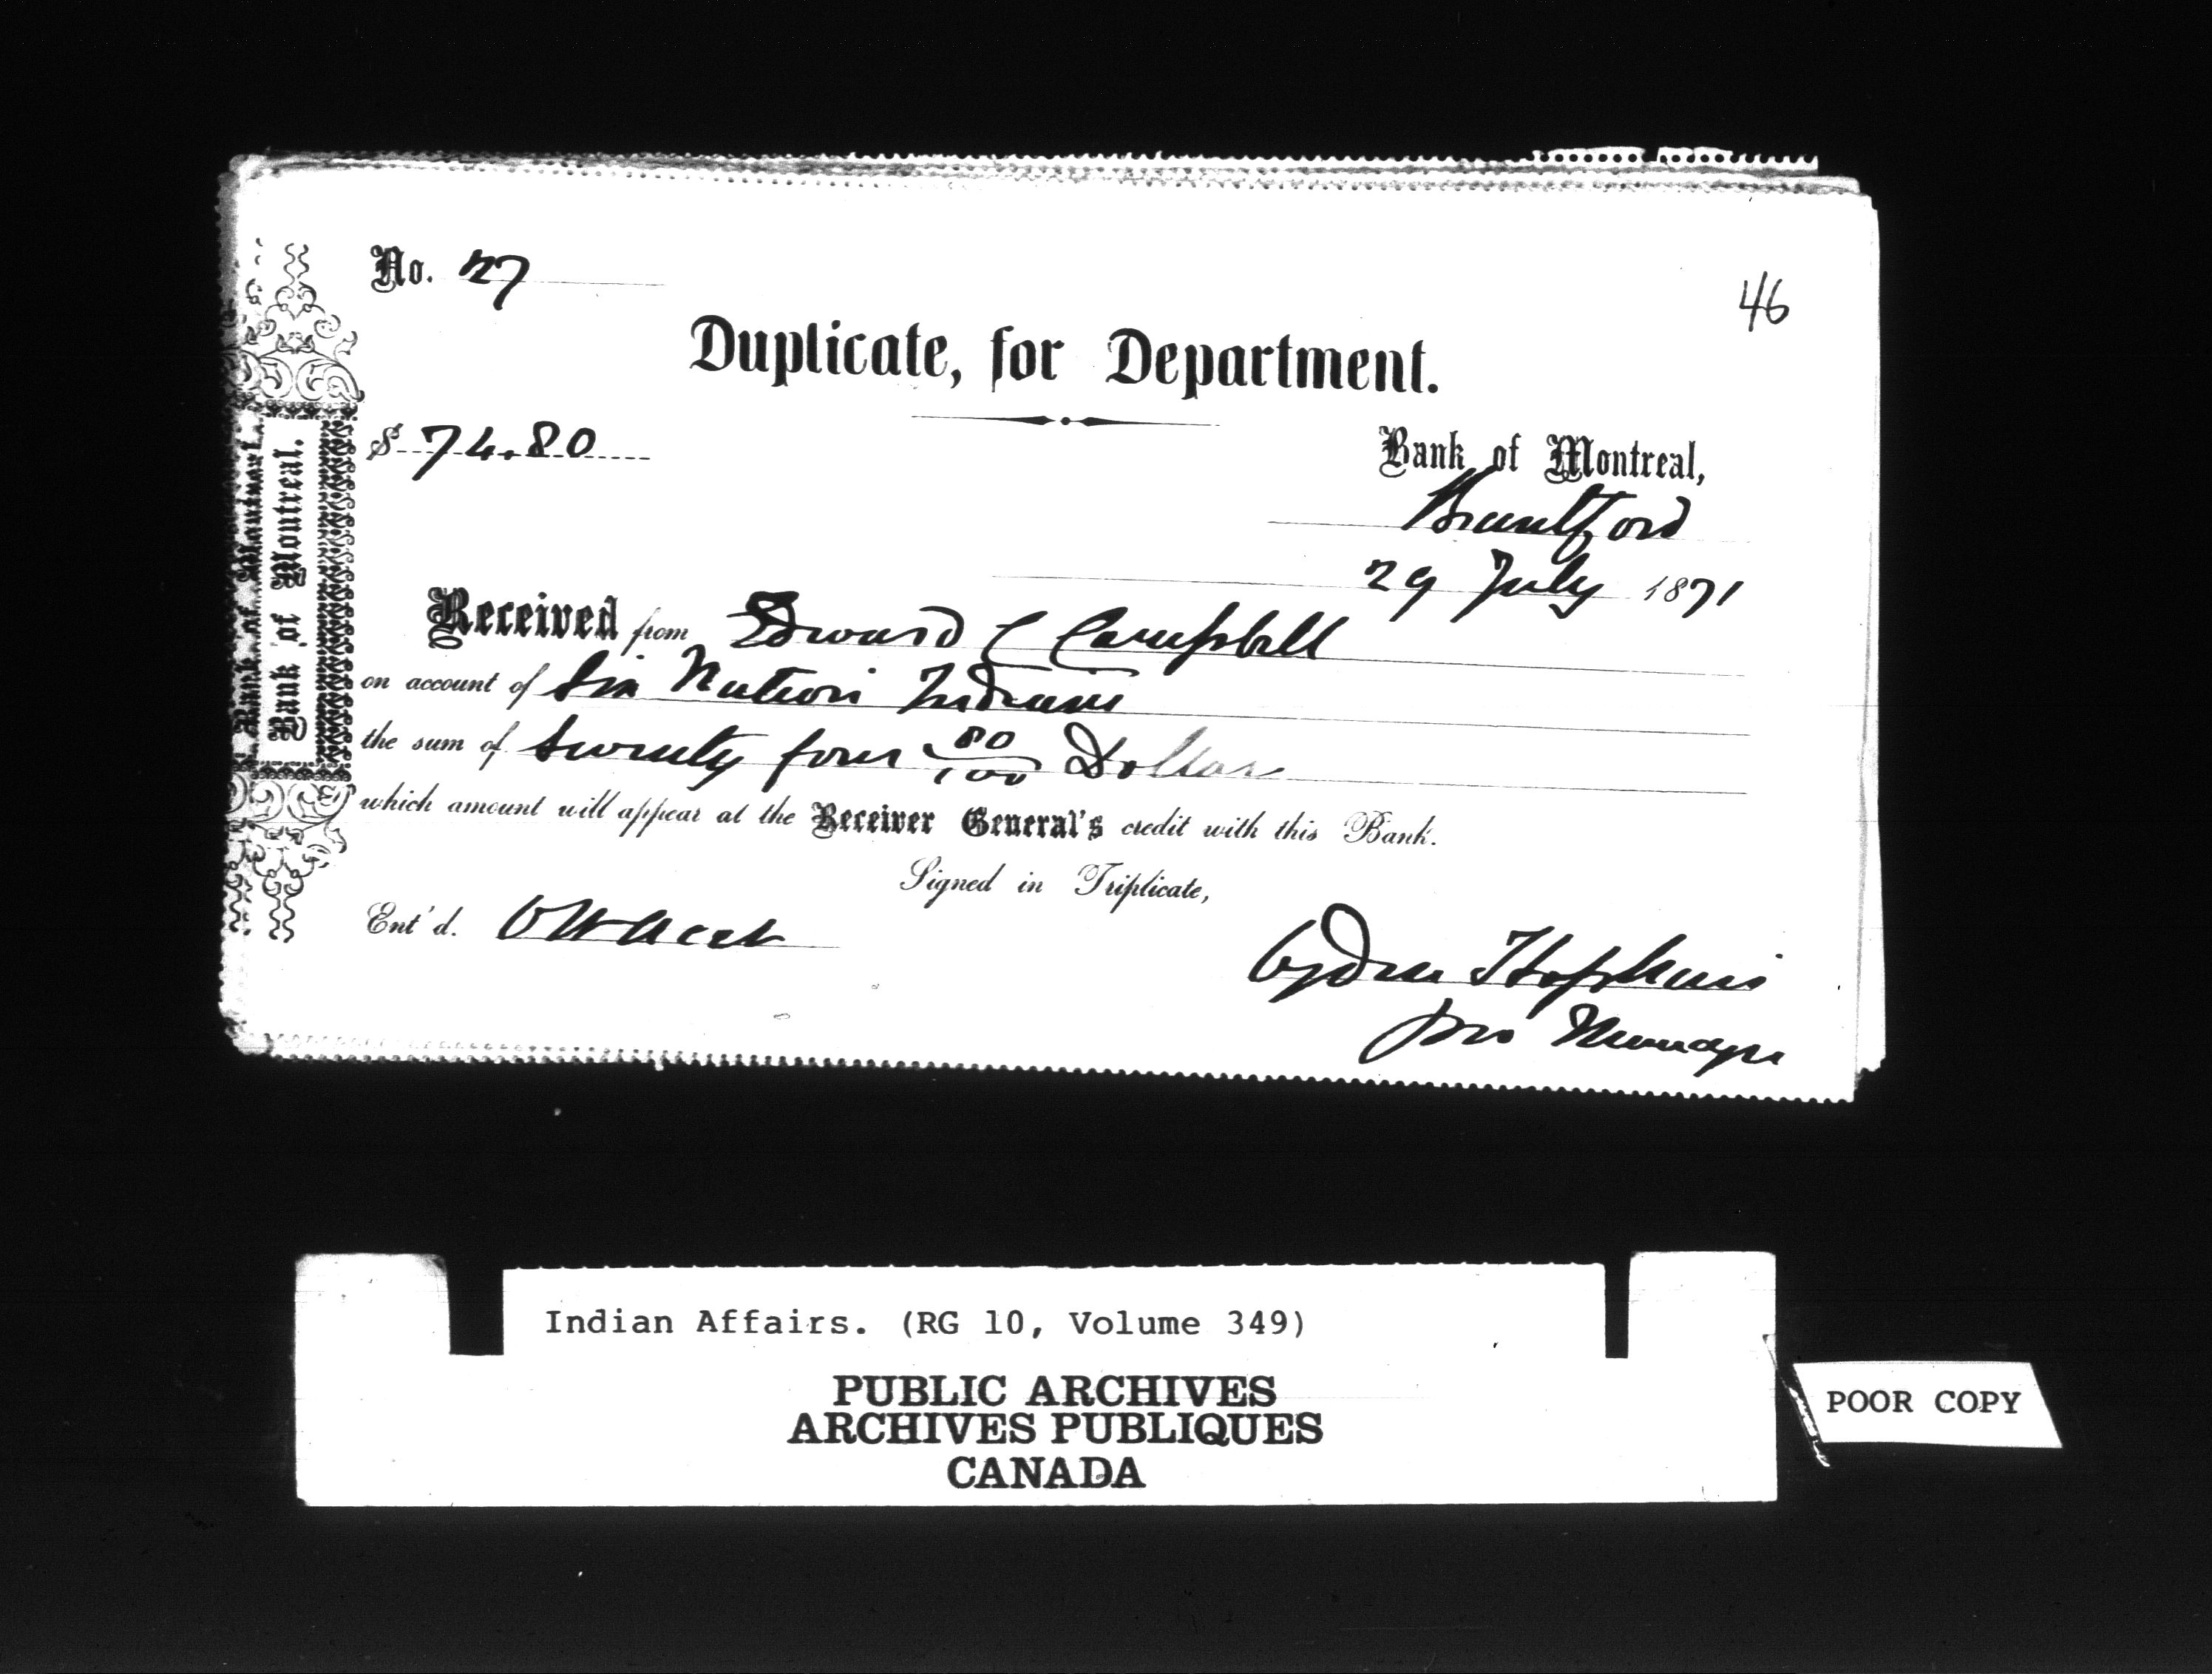 No. 27
46
Duplicate, for Department.
$ 74.80
Bank of Montreal,
Brantford
29 July 1871
Bank of Montreal.
Bank of Montreal.
Received from Edward C Campbell
on account of Six Nation Indians
the sum of seventy four 80/100 Dollars
which amount will appear at the Receiver General's credit with this Bank.
Signed in Triplicate,
Ent'd.
Hopkins
pro Manager
Indian Affairs. (RG 10, Volume 349)
PUBLIC ARCHIVES
ARCHIVES PUBLIQUES
CANADA
POOR COPY